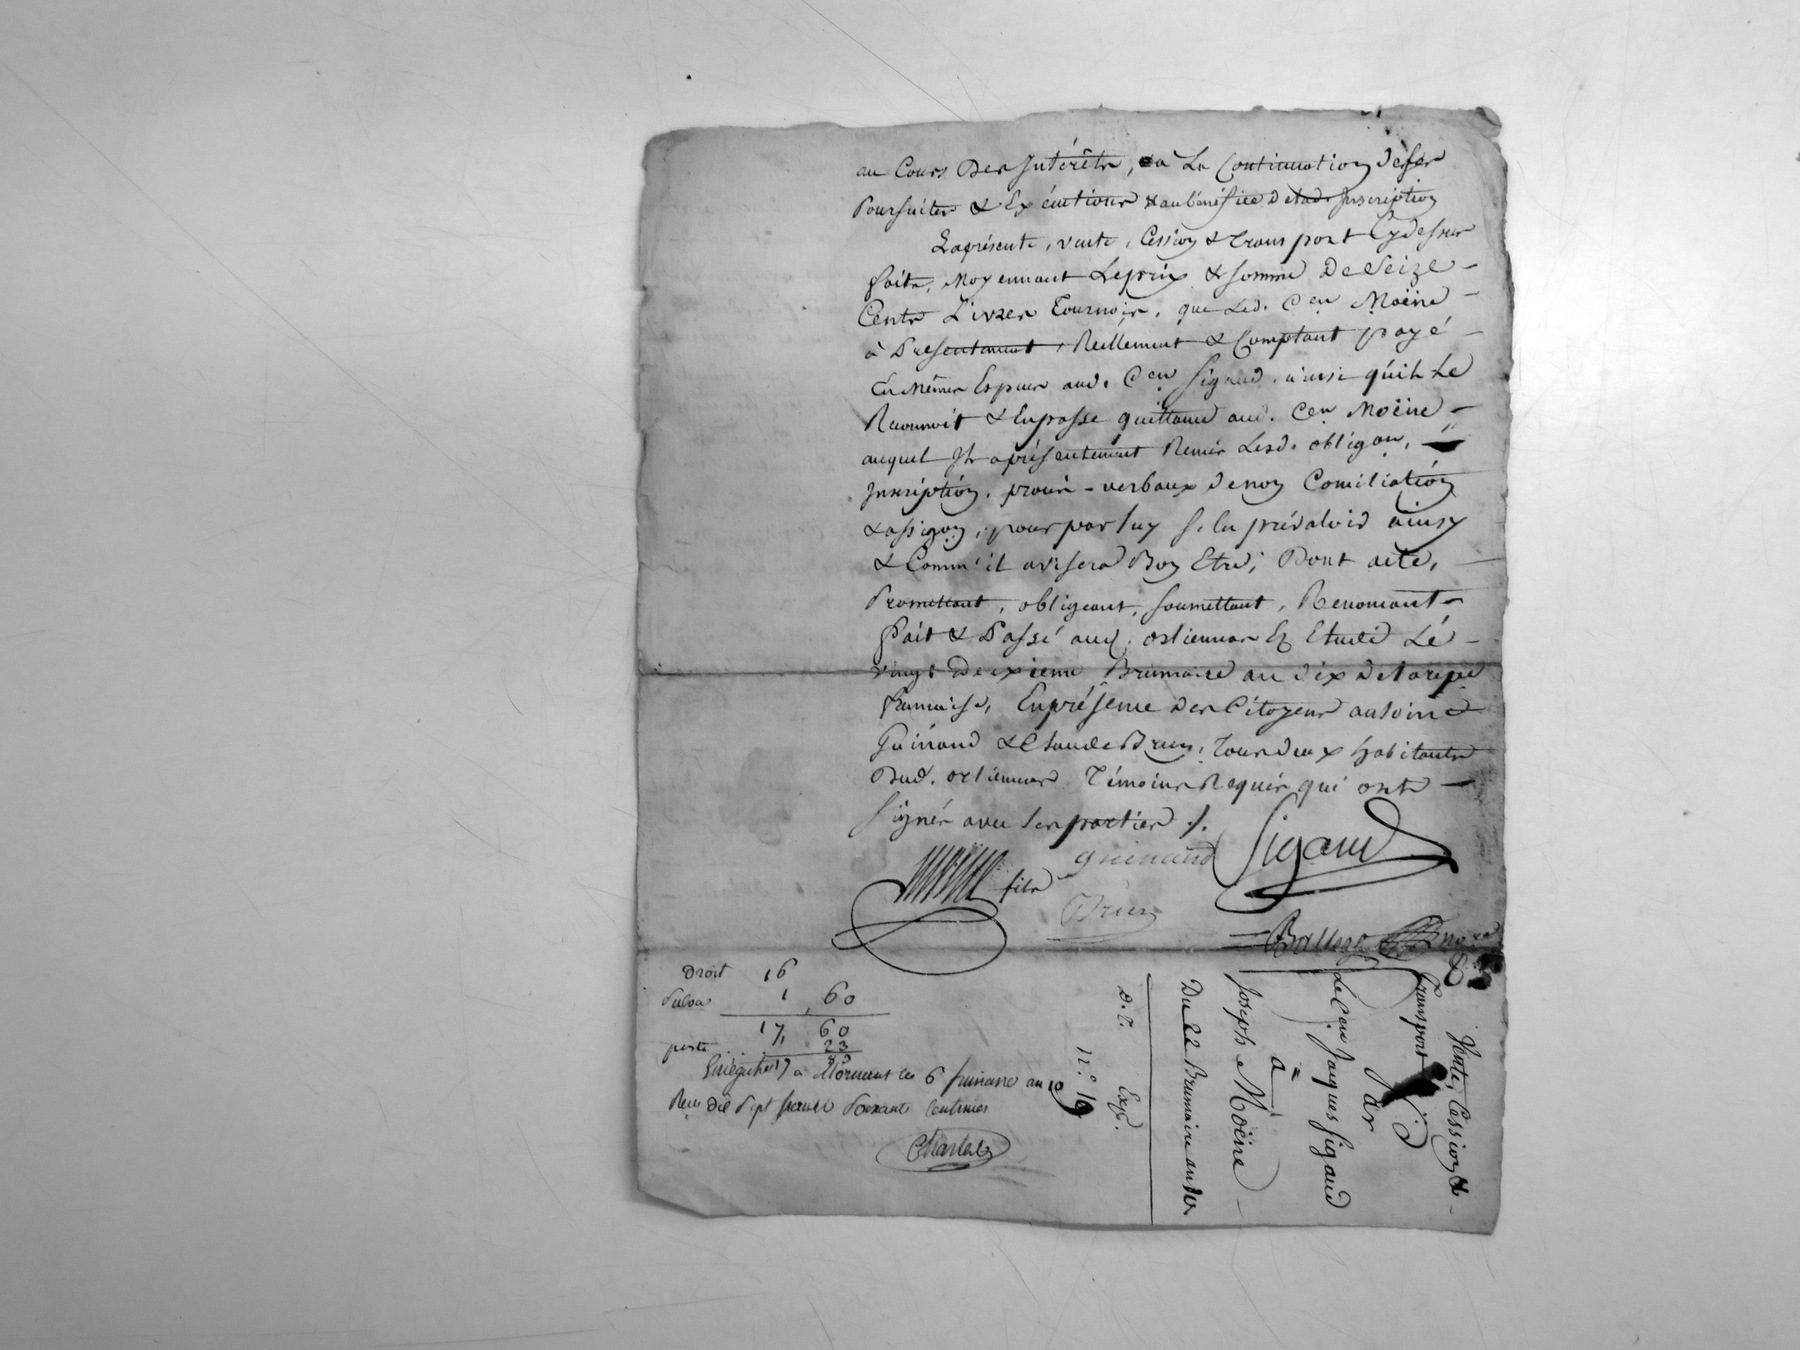 au Cours Des Intérêts, & à La Continuation De ses
Poursuites & Exécutions & au bénéfice de lad. Inscription
La présente, vente, Cession & transport Cy dessus
faite, Moyennant Le prix & somme De Seize
Cents Livres Tournois, que Led. Cen Moëne
à Présentement, Réellement & Comptant payé
En Mêmes Espèces aud. Cen Sigaud, ainsi qu'il Le
Reconnoit & En passe quittance aud. Cen Moëne
auquel Il a présentement Remis Lesd. obligaon,
Inscription, procès-verbaux de non Conciliation
& assigon, pour par luy s'en prévaloir ainsy
& Comm'il avisera Bon Etre; Dont acte,
Promettant, obligeant, soumettant, Renonçant
fait & Passé aud. orlienas En Etude Le
vingt Deuxieme Brumaire an dix de la répe
française, En présence des Citoyens antoine
Guinand & Claude Brun, Tous deux habitants
Dud. orlienas Témoins Requis qui ont
signés avec les parties ./.
fils guinand Sigaud
Brun
nore
Droit 16
1, 60
17, 60
23
Enregistré à Mornant le 6 frimaire an 10
Reçu dix sept francs soixante Centimes
Charles
Vente, Cession &
Transport
Par
Le Cen Jaques Sigaud
à
Joseph Moëne
Du 22 Brumaire an 10
Exp.
n.° 19